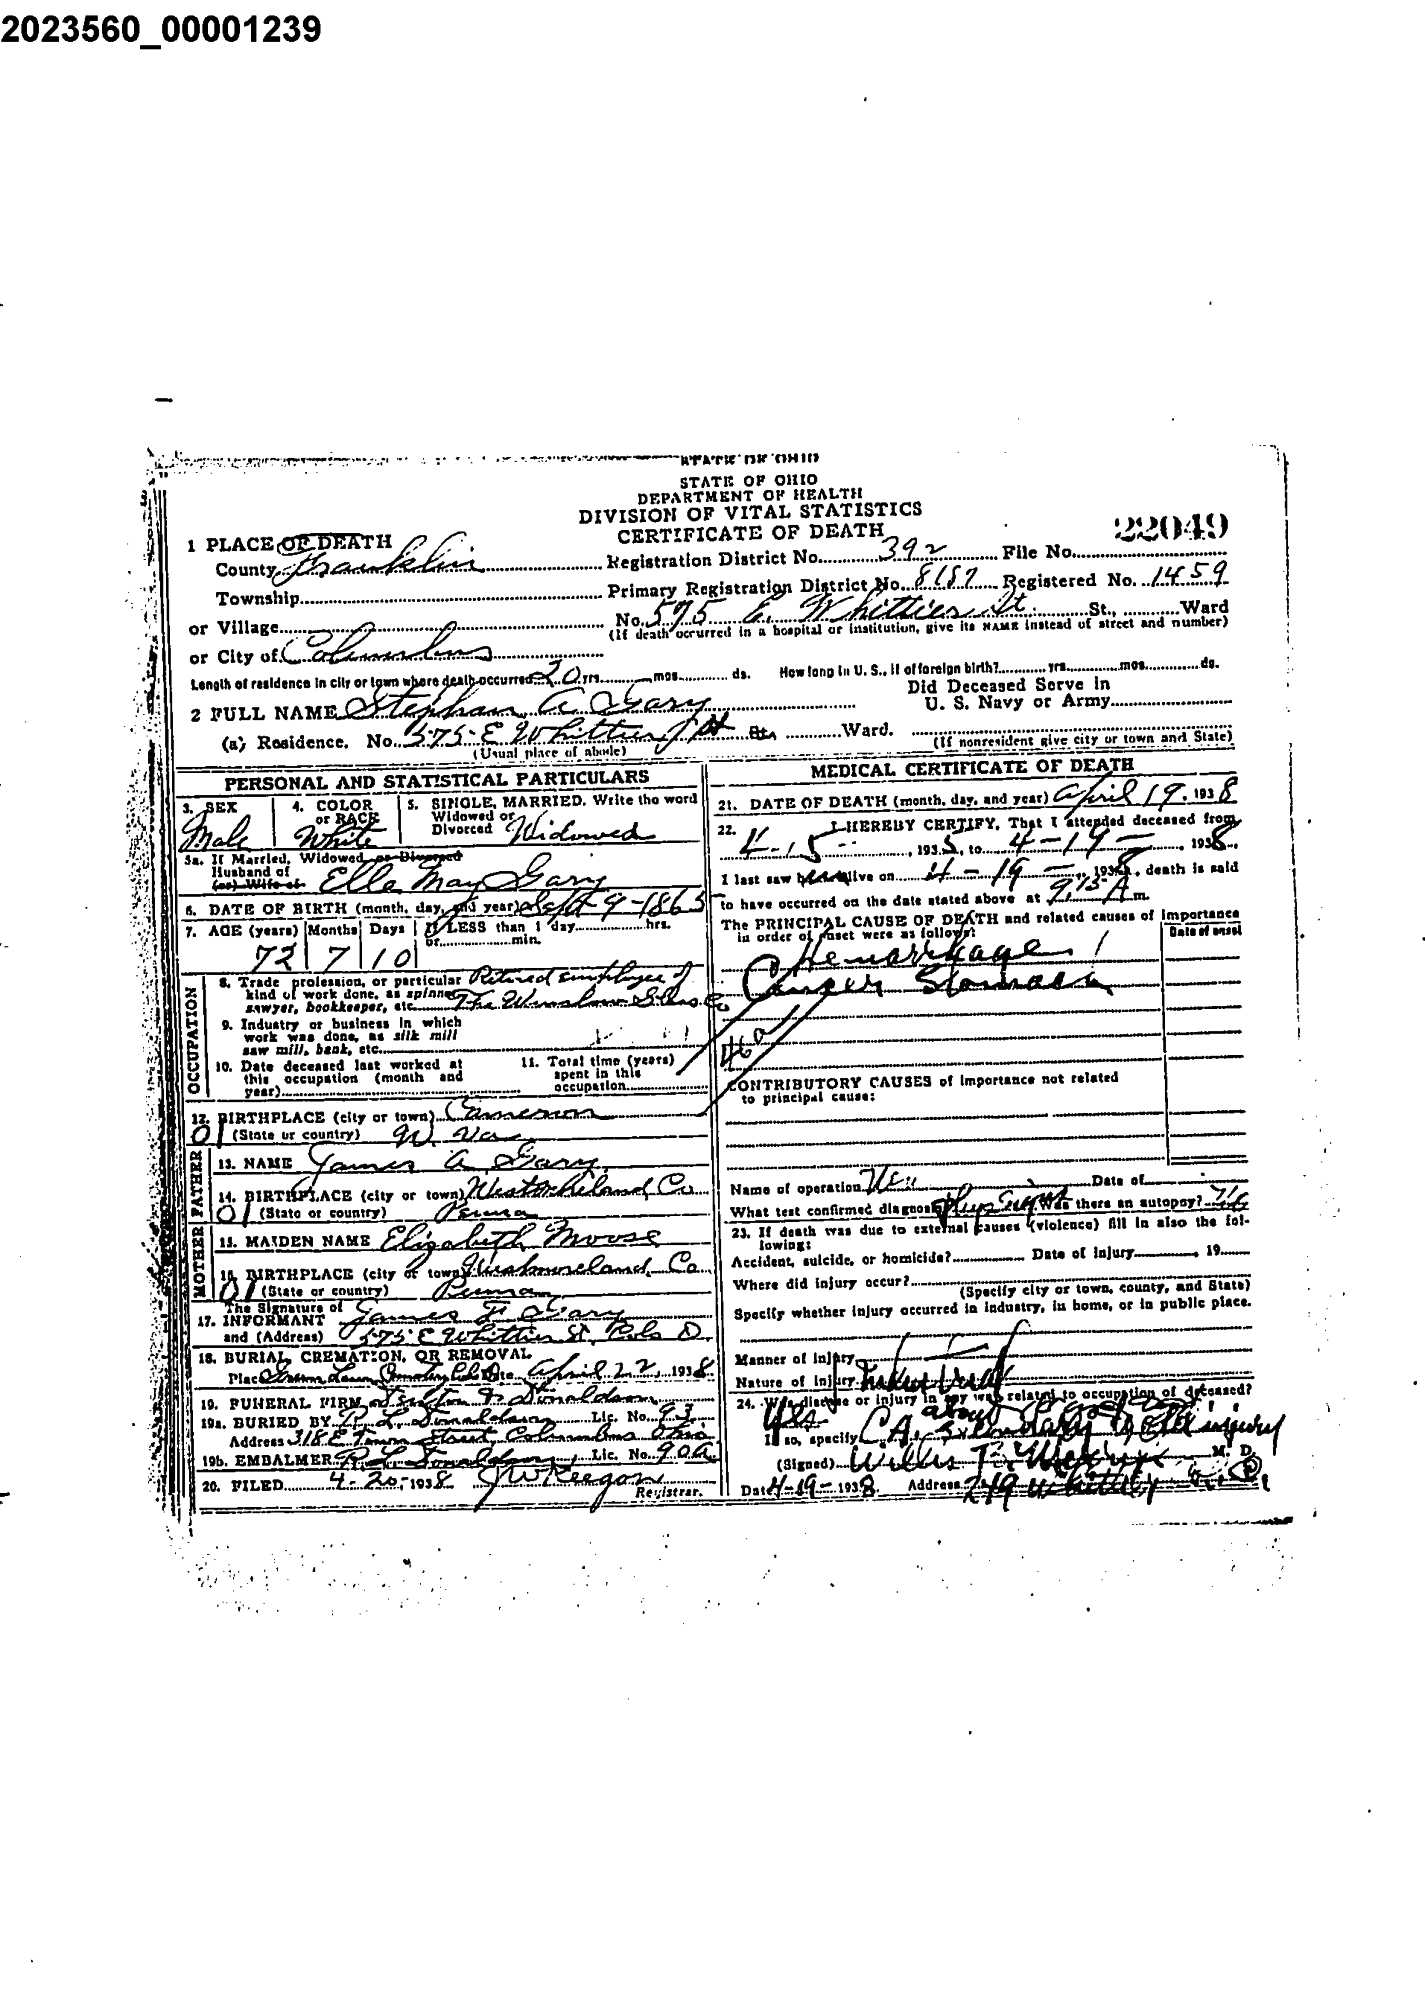 2023560_00001239
STATE OF OHIO
STATE OF OHIO
DEPARTMENT OF HEALTH
DIVISION OF VITAL STATISTICS
CERTIFICATE OF DEATH
22049
1 PLACE OF DEATH
County Franklin Registration District No. 392 File No.
Township Primary Registration District No. 8187 Registered No. 1459
or Village No. 575 E. Whittier St. St., Ward
(If death occurred in a hospital or institution, give its NAME instead of street and number)
or City of Columbus
Length of residence in city or town where death occurred 20 yrs. mos. ds. How long in U. S., if of foreign birth? yrs. mos. ds.
2 FULL NAME Stephan A Gary Did Deceased Serve in U. S. Navy or Army
(a) Residence. No. 575 E Whittier St St., Ward.
(Usual place of abode) (If nonresident give city or town and State)
PERSONAL AND STATISTICAL PARTICULARS
3. SEX 4. COLOR or RACE 5. SINGLE, MARRIED, Write the word Widowed or Divorced
Male White Widowed
5a. If Married, Widowed, or Divorced
Husband of
(or) Wife of Ella May Gary
6. DATE OF BIRTH (month, day, and year) Sept 9-1865
7. AGE (years) Months Days If LESS than 1 day hrs.
or min.
72 7 10
OCCUPATION
8. Trade profession, or particular Retired Employee of
kind of work done, as spinner The Winslow
sawyer, bookkeeper, etc. Co
9. Industry or business in which
work was done, as silk mill
saw mill, bank, etc.
10. Date deceased last worked at 11. Total time (years)
this occupation (month and spent in this
year) occupation
12. BIRTHPLACE (city or town) Cameron
01 (State or country) W. Va
FATHER
13. NAME James A Gary
14. BIRTHPLACE (city or town) Co
01 (State or country) Penna
MOTHER
15. MAIDEN NAME Elizabeth Moose
16. BIRTHPLACE (city or town) Westmoreland Co
01 (State or country) Penna
The Signature of
17. INFORMANT James F Gary
and (Address) 575 E Whittier St. Cols O.
18. BURIAL, CREMATION, OR REMOVAL
Place Green Lawn Cemetery Date April 22, 1938
19. FUNERAL FIRM & Donaldson
19a. BURIED BY R. L. Donaldson Lic. No. 93
Address 318 E Town Street Columbus Ohio
19b. EMBALMER R L Donaldson, Lic. No. 90A
20. FILED 4-20-, 1938 J W Keegan
Registrar.
MEDICAL CERTIFICATE OF DEATH
21. DATE OF DEATH (month, day, and year) April 19. 1938
22. I HEREBY CERTIFY, That I attended deceased from
4-15-, 1935, to 4-19-, 1938,
I last saw him alive on 4-19-, 1938, death is said
to have occurred on the date stated above at 9:15 A m.
The PRINCIPAL CAUSE OF DEATH and related causes of Importance
in order of onset were as follows: Date of onset
Hemorrhage
Cancer Stomach
46
CONTRIBUTORY CAUSES of importance not related
to principal cause:
Name of operation Date of
What test confirmed diagnosis Was there an autopsy? No
23. If death was due to external causes (violence) fill in also the following:
Accident, suicide, or homicide? Date of injury , 19
Where did injury occur?
(Specify city or town, county, and State)
Specify whether injury occurred in industry, in home, or in public place.
Manner of injury
Nature of injury
24. Was disease or injury in any way related to occupation of deceased?
Yes
If so, specify CA. Secondary to old injury
(Signed) Willis M. D.
Date 4-19-1938 Address 249 Whittier